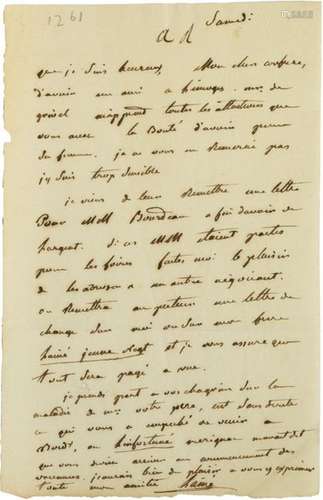 1261
Samedi
que je suis heureux, Mon cher confrere,
d'avoir un ami a Limoges. mr. de
m'apprend toutes les attentions que
vous avez la Bonté d'avoir pour
sa femme. je ne vous en remercie pas
j'y suis trop sensible
je viens de leur Remettre une lettre
Pour MM Bourdeau a fin d'avoir de
l'argent. si ces MM étaient partis
pour les foires faites moi le plaisir
de les adresser a un autre négociant.
on Remettra au porteur une lettre de
change sur moi ou sur mon frere
hainé jeune et je vous assure que
tout sera payé a vue.
je prends part a vos chagrins sur la
maladie de mr. votre pere, c'est sans doute
ce qui vous a empeché de venir a
Bord, ou l'infortuné merignac m'avait dit
que vous deviez arriver au commencement des
vacances, j'aurais bien du plaisir a vous y exprimer
toute mon amitié